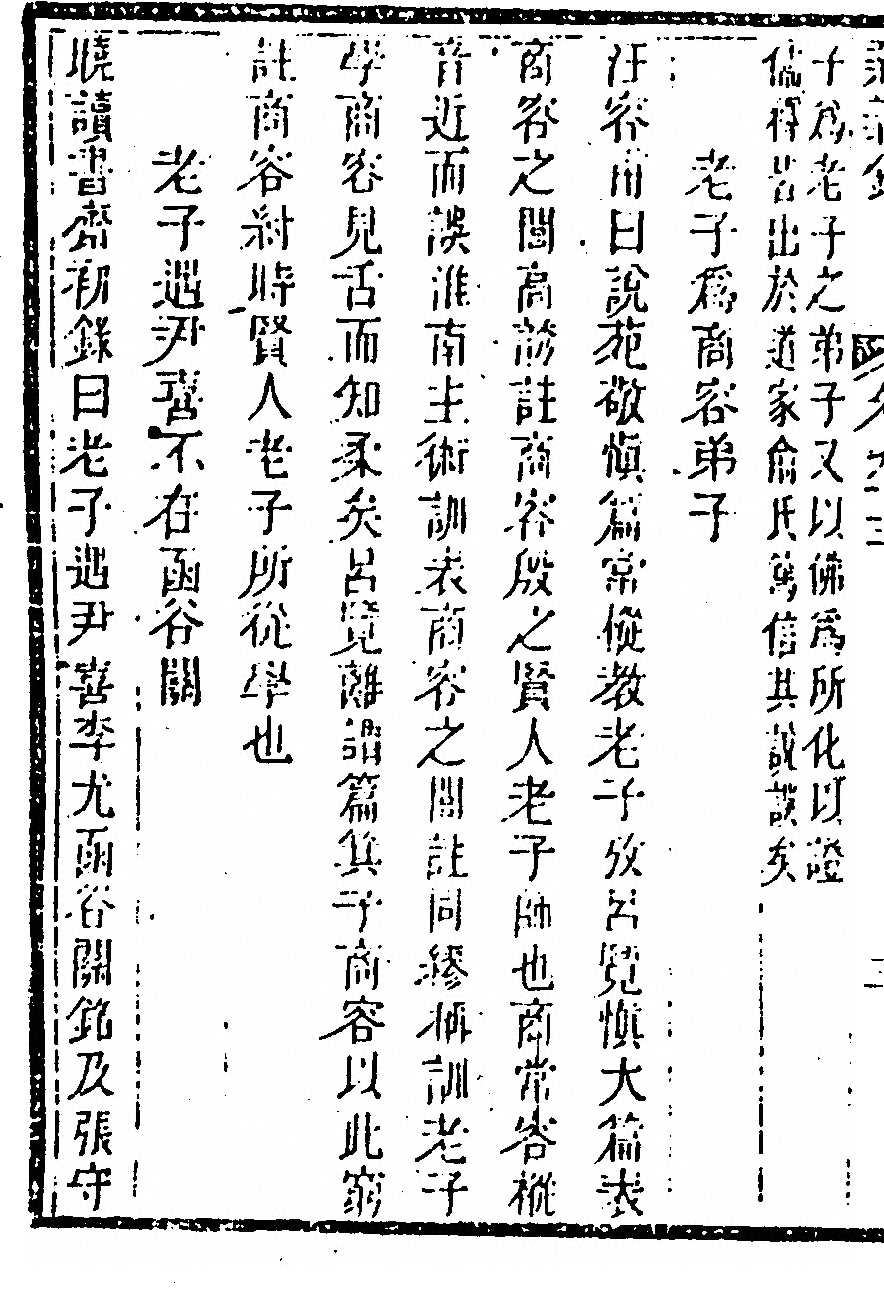 子爲老子之弟子又以佛爲所化以證
儒釋皆出於道家俞氏篤信其說誤矣
老子爲商容弟子
汪容甫曰說苑敬愼篇常樅教老子攷呂覽愼大篇表
商容之閭高誘註商容殷之賢人老子師也商常容樅
音近而誤淮南主術訓表商容之閭註同繆稱訓老子
學商容見舌而知柔矣呂覽離謂篇箕子商容以此窮
註商容紂時賢人老子所從學也
老子遇尹喜不在函谷關
曉讀書齋初錄曰老子遇尹喜李尤函谷關銘及張守